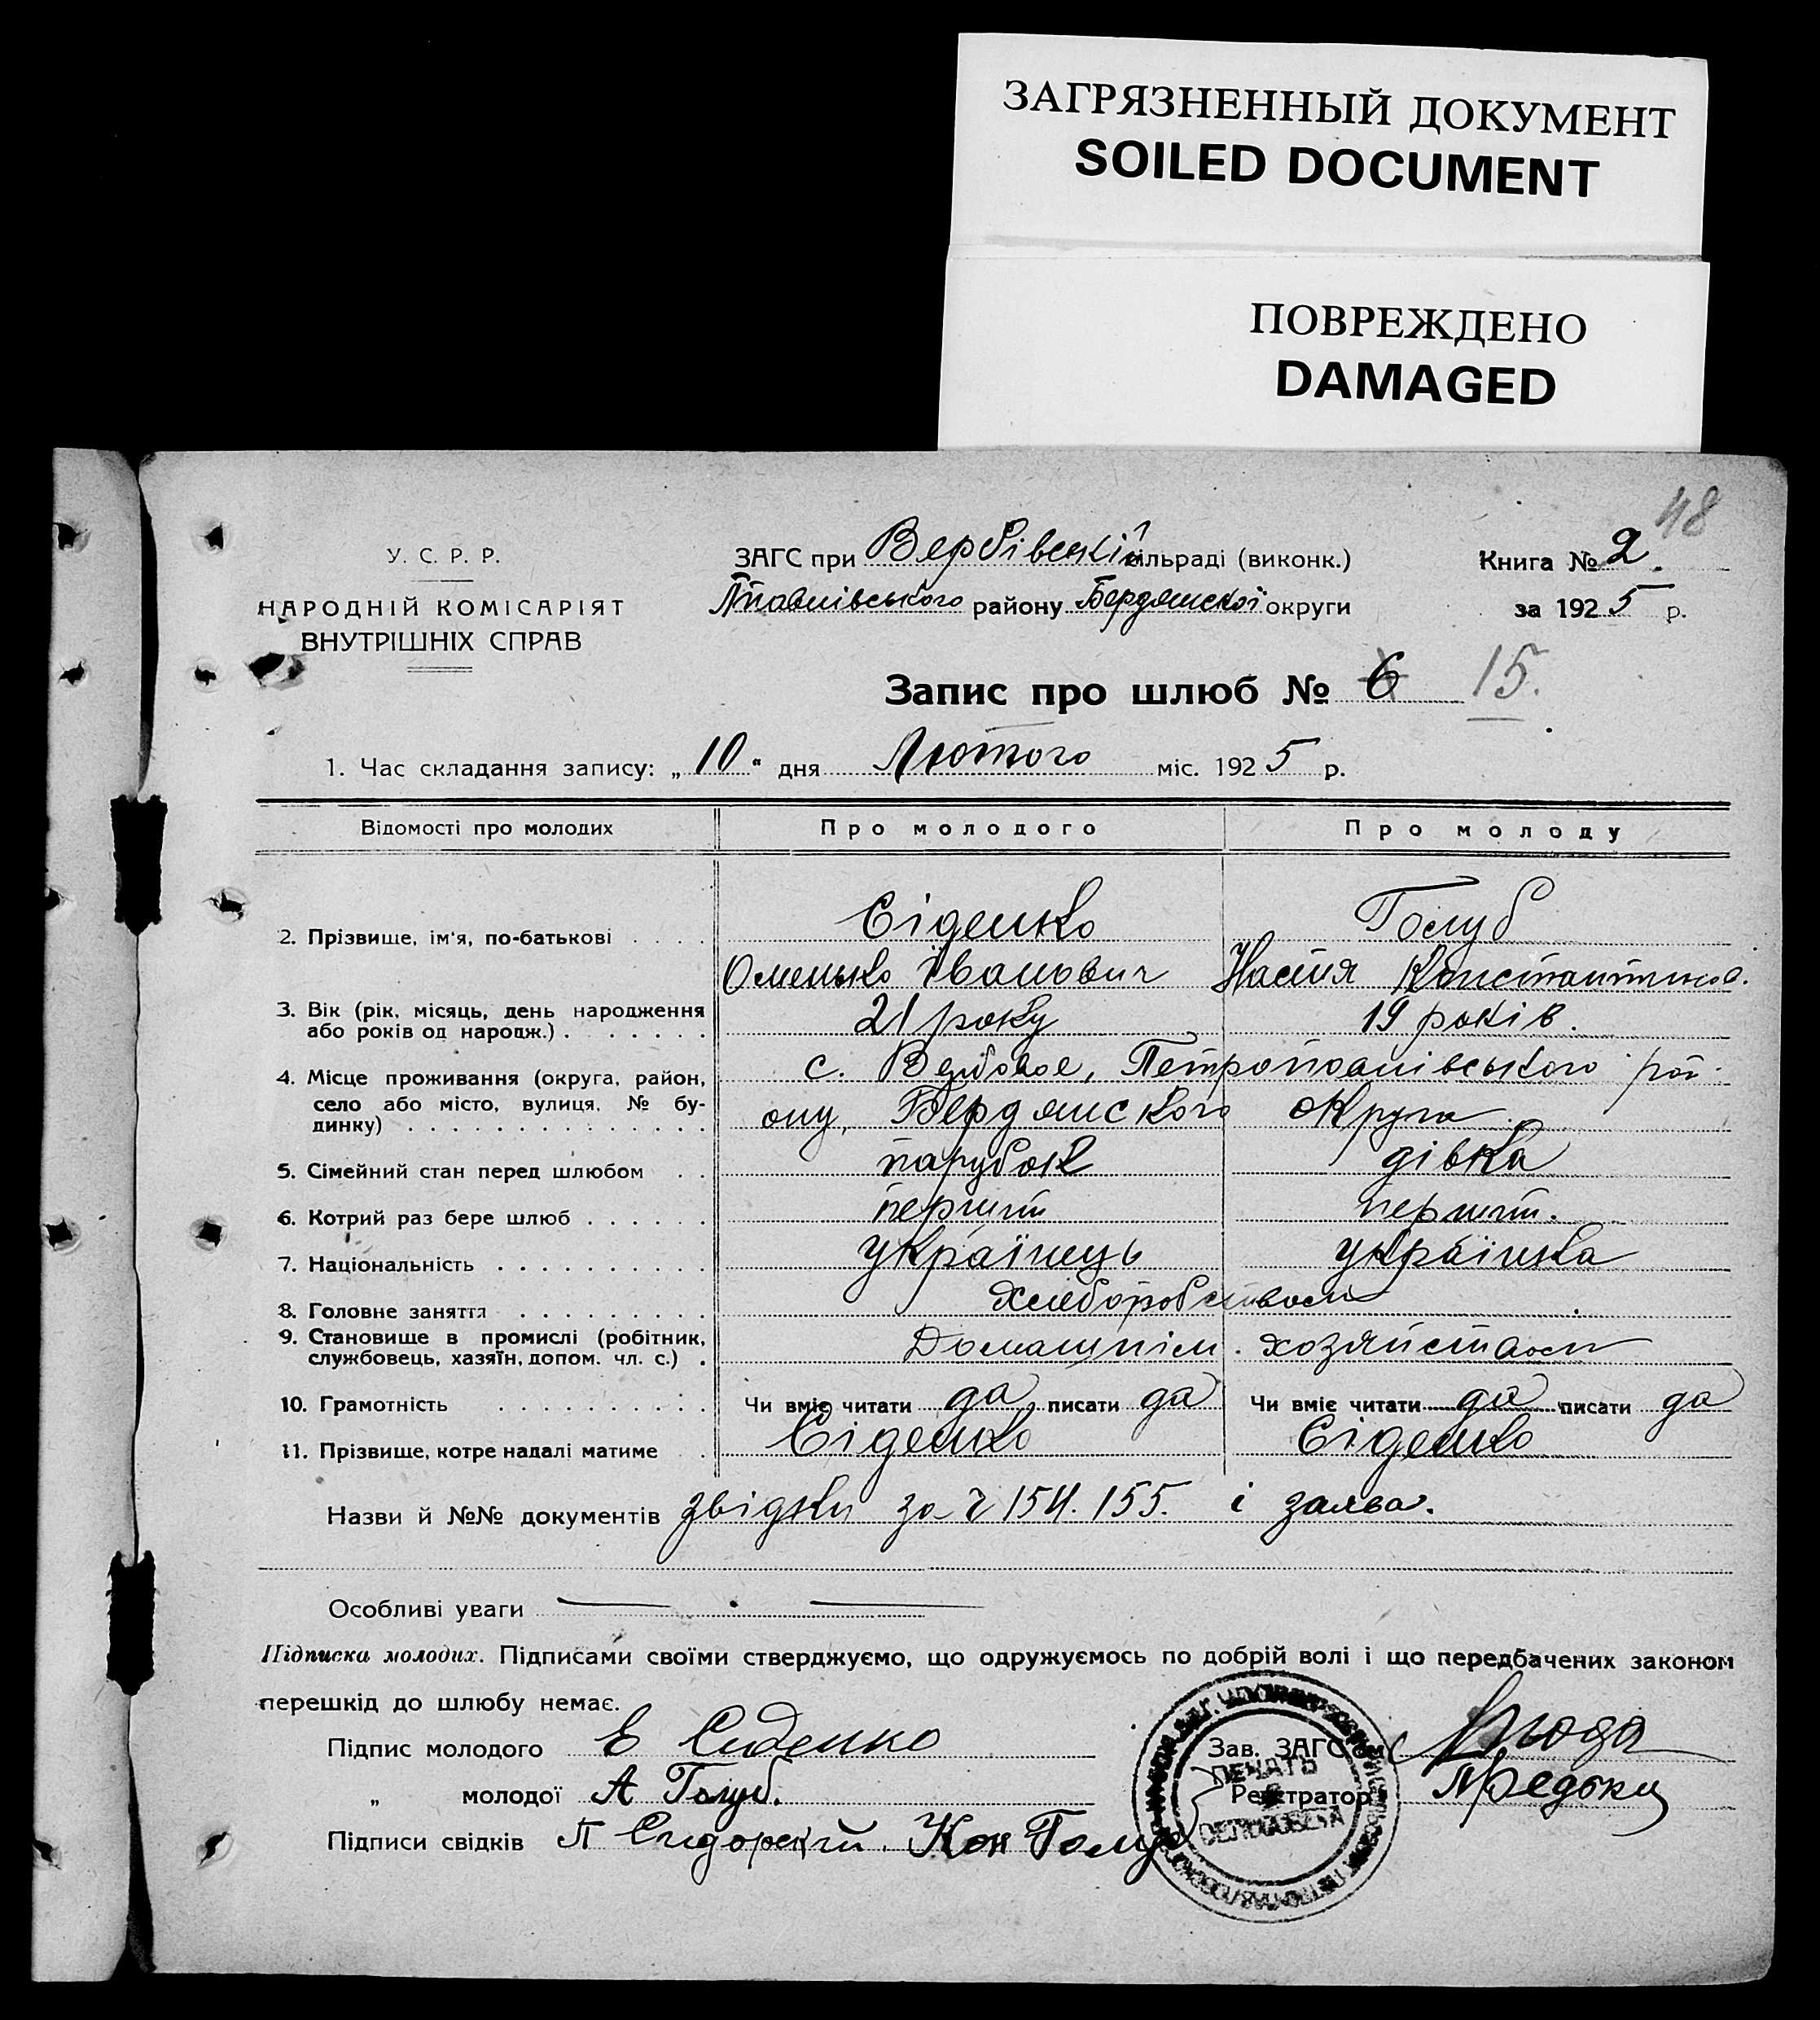 ЗАГРЯЗНЕННЫЙ ДОКУМЕНТ
SOILED DOCUMENT
ПОВРЕЖДЕНО
DAMAGED
48
У. С. Р. Р.
НАРОДНІЙ КОМІСАРІЯТ
ВНУТРІШНІХ СПРАВ
ЗАГС при Вербівській сільраді (виконк.)
Ппавлівського району Бердянської округи
Книга № 2.
за 1925 р.
Запис про шлюб № 6 15.
1. Час складання запису: „10" дня Лютого міс. 1925 р.
Відомості про молодих Про молодого Про молоду
2. Прізвище, ім'я, по-батькові Сіденко Голуб
Омелько Іванович Настя Константинов.
3. Вік (рік, місяць, день народження або років од народж.) 21 року 19 років.
4. Місце проживання (округа, район, село або місто, вулиця, № будинку) с. Вербовое, Петропавлівського рай-
ону, Бердянского округа.
5. Сімейний стан перед шлюбом парубок дівка
6. Котрий раз бере шлюб перший перший.
7. Національність Українець Українка
8. Головне заняття Хлеборобством
9. Становище в промислі (робітник, службовець, хазяїн, допом. чл. с.) Домашнім хозяйством
10. Грамотність Чи вміє читати да писати да Чи вміє читати да писати да
11. Прізвище, котре надалі матиме Сіденко Сіденко
Назви й №№ документів звідки за ч 154. 155. і заява.
Особливі уваги
Підписка молодих. Підписами своїми стверджуємо, що одружуємось по добрій волі і що передбачених законом
перешкід до шлюбу немає.
Підпис молодого Е Сиденко
„ молодої А Голуб.
Підписи свідків П Сидорский. Кон Голуб
Зав. ЗАГС'ом
Регістратор
ПЕЧАТЬ